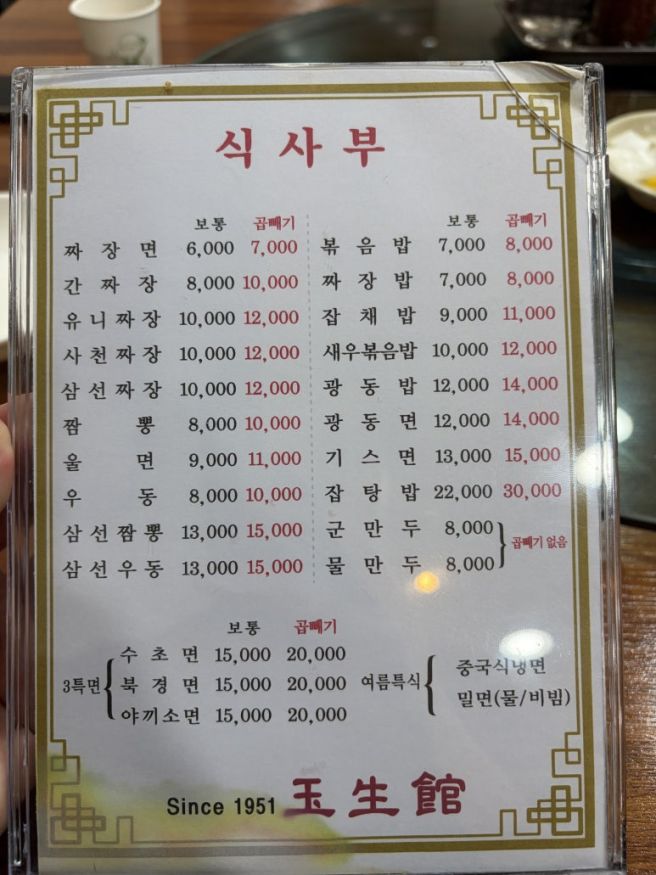 식사부
보통 곱빼기
짜장면 6,000 7,000
간짜장 8,000 10,000
유니짜장 10,000 12,000
사천짜장 10,000 12,000
삼선짜장 10,000 12,000
짬뽕 8,000 10,000
울면 9,000 11,000
우동 8,000 10,000
삼선짬뽕 13,000 15,000
삼선우동 13,000 15,000
보통 곱빼기
볶음밥 7,000 8,000
짜장밥 7,000 8,000
잡채밥 9,000 11,000
새우볶음밥 10,000 12,000
광동밥 12,000 14,000
광동면 12,000 14,000
기스면 13,000 15,000
잡탕밥 22,000 30,000
군만두 8,000
물만두 8,000
곱빼기 없음
보통 곱빼기
3특면
수초면 15,000 20,000
북경면 15,000 20,000
야끼소면 15,000 20,000
여름특식
중국식냉면
밀면(물/비빔)
Since 1951 玉生館